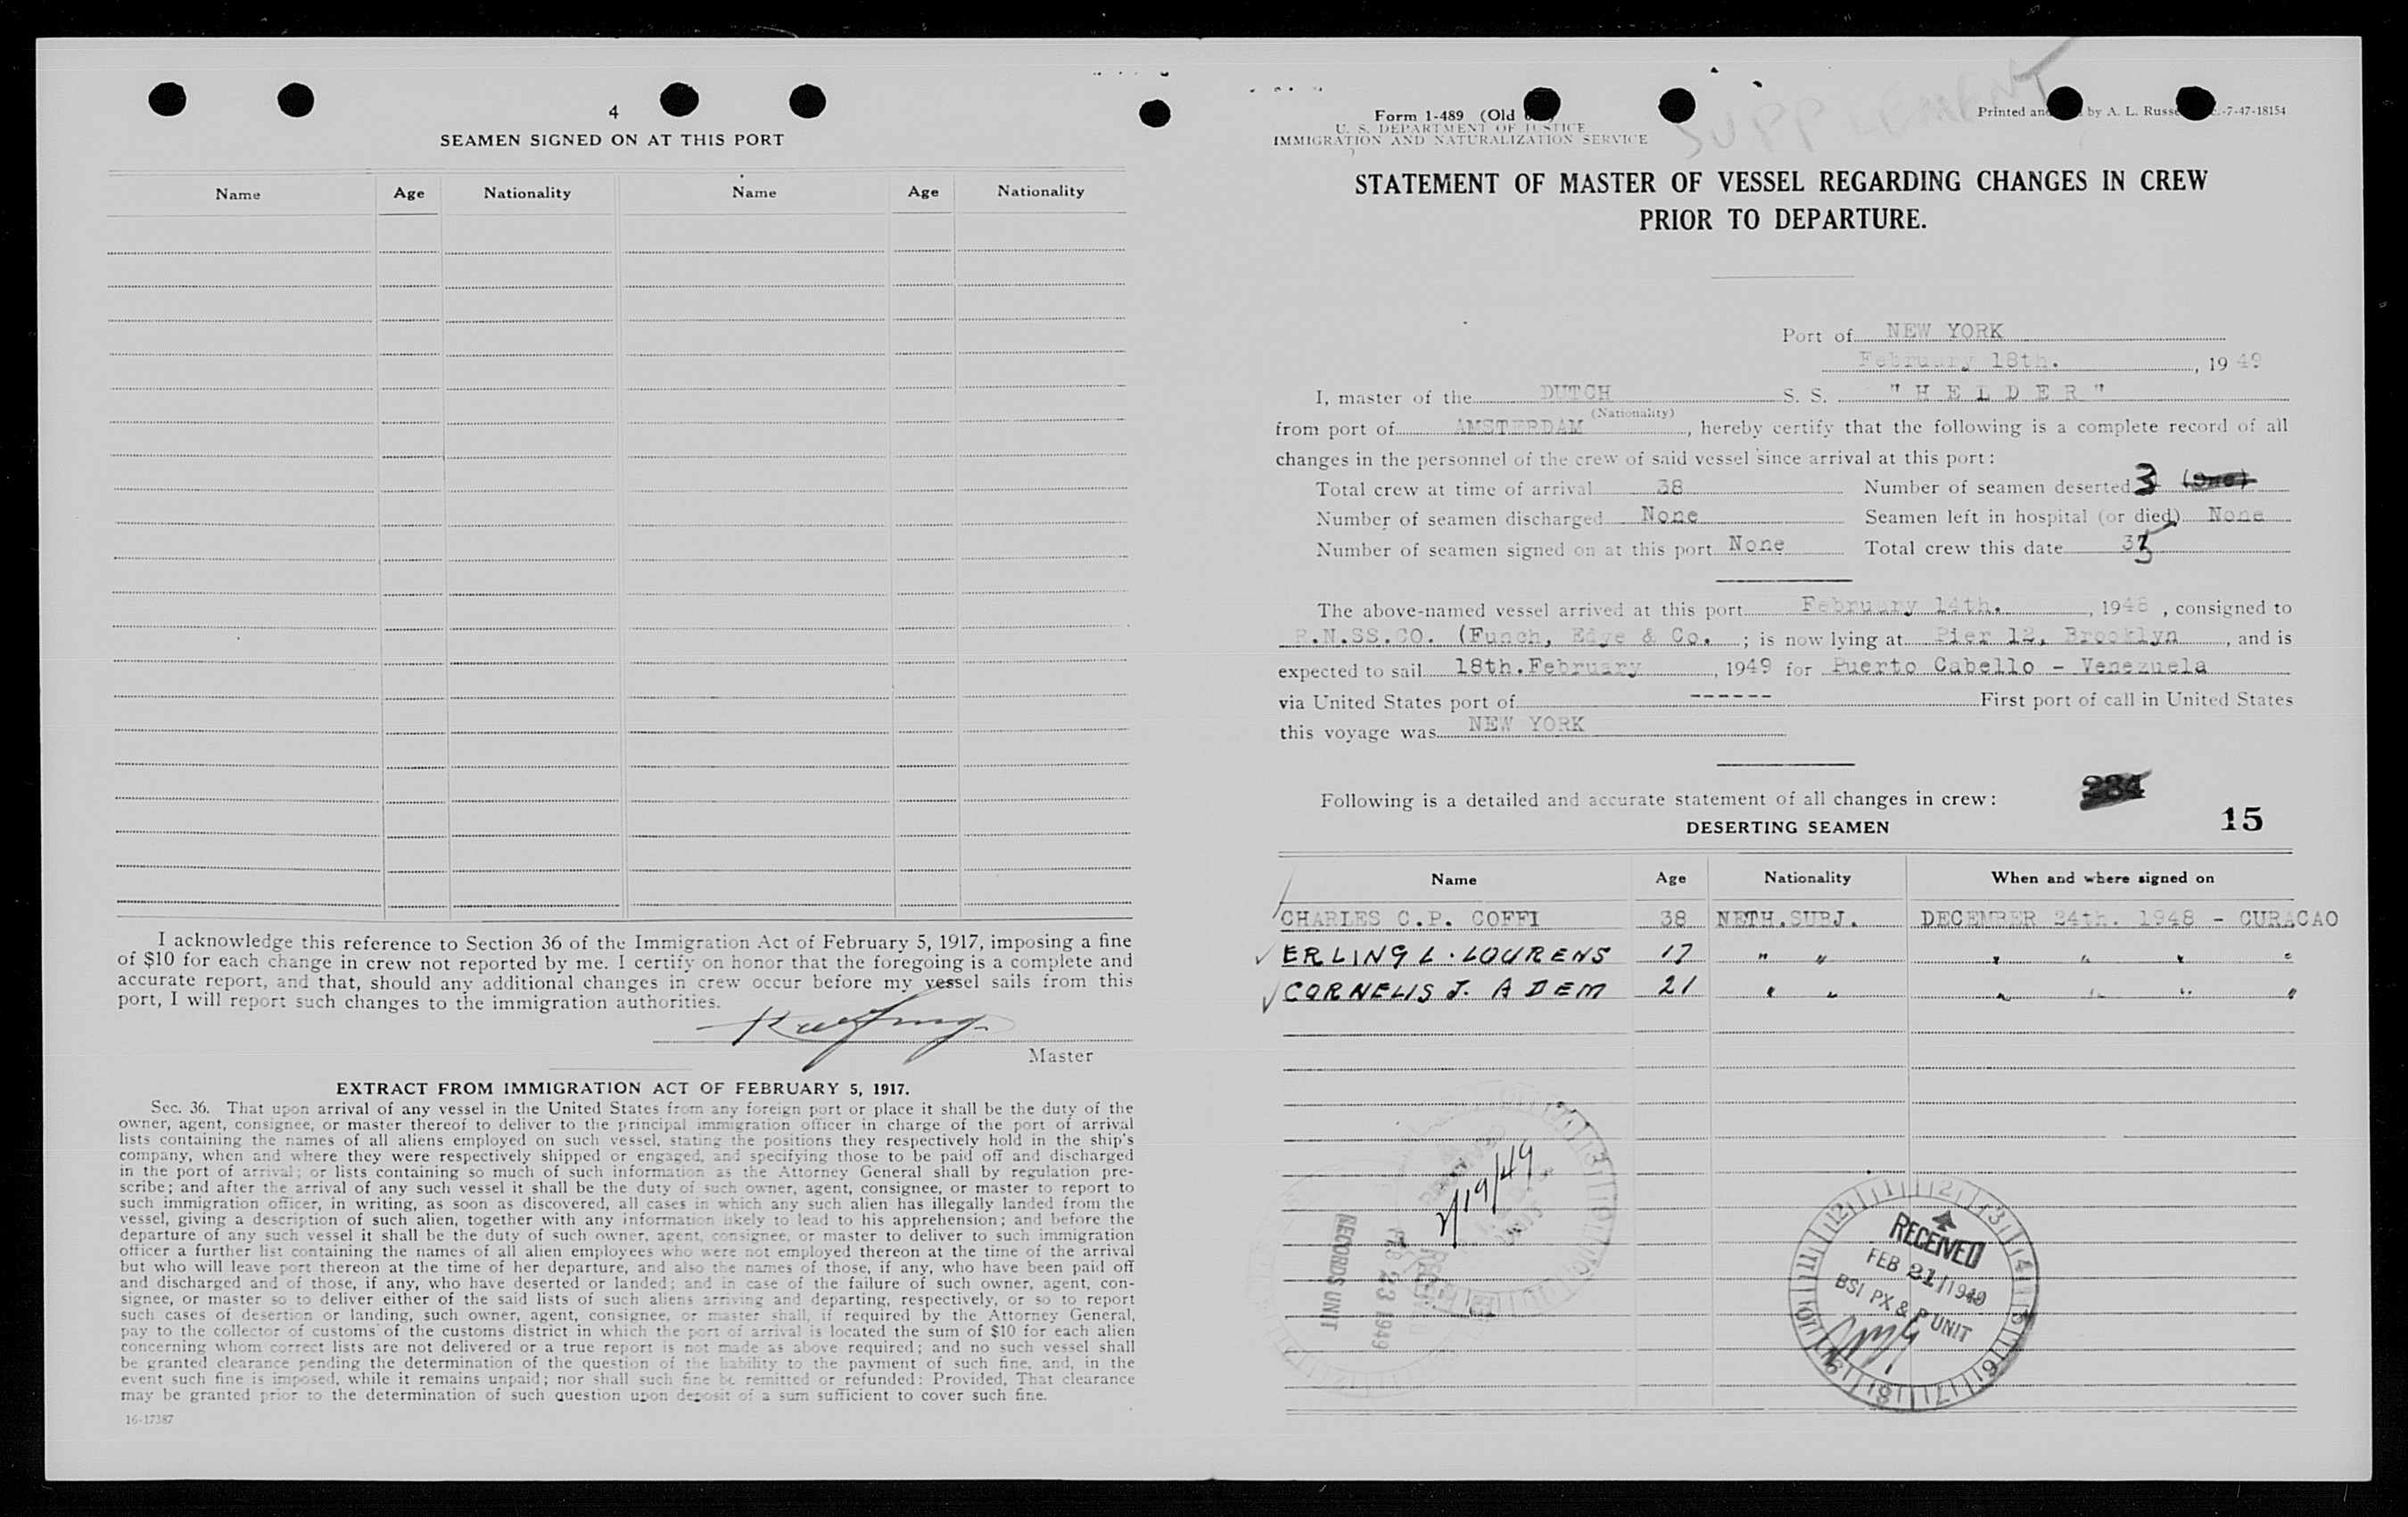 4
SEAMEN SIGNED ON AT THIS PORT
Name Age Nationality Name Age Nationality
I acknowledge this reference to Section 36 of the Immigration Act of February 5, 1917, imposing a fine
of $10 for each change in crew not reported by me. I certify on honor that the foregoing is a complete and
accurate report, and that, should any additional changes in crew occur before my vessel sails from this
port, I will report such changes to the immigration authorities.
Master
EXTRACT FROM IMMIGRATION ACT OF FEBRUARY 5, 1917.
Sec. 36. That upon arrival of any vessel in the United States from any foreign port or place it shall be the duty of the
owner, agent, consignee, or master thereof to deliver to the principal immigration officer in charge of the port of arrival
lists containing the names of all aliens employed on such vessel, stating the positions they respectively hold in the ship's
company, when and where they were respectively shipped or engaged, and specifying those to be paid off and discharged
in the port of arrival; or lists containing so much of such information as the Attorney General shall by regulation pre-
scribe; and after the arrival of any such vessel it shall be the duty of such owner, agent, consignee, or master to report to
such immigration officer, in writing, as soon as discovered, all cases in which any such alien has illegally landed from the
vessel, giving a description of such alien, together with any information likely to lead to his apprehension; and before the
departure of any such vessel it shall be the duty of such owner, agent, consignee, or master to deliver to such immigration
officer a further list containing the names of all alien employees who were not employed thereon at the time of the arrival
but who will leave port thereon at the time of her departure, and also the names of those, if any, who have been paid off
and discharged and of those, if any, who have deserted or landed; and in case of the failure of such owner, agent, con-
signee, or master so to deliver either of the said lists of such aliens arriving and departing, respectively, or so to report
such cases of desertion or landing, such owner, agent, consignee, or master shall, if required by the Attorney General,
pay to the collector of customs of the customs district in which the port of arrival is located the sum of $10 for each alien
concerning whom correct lists are not delivered or a true report is not made as above required; and no such vessel shall
be granted clearance pending the determination of the question of the liability to the payment of such fine, and, in the
event such fine is imposed, while it remains unpaid; nor shall such fine be remitted or refunded: Provided, That clearance
may be granted prior to the determination of such question upon deposit of a sum sufficient to cover such fine.
16-17387
SUPPLEMENT
Form 1-489 (Old
Printed and by A. L. Russ -7-47-18154
U. S. DEPARTMENT OF JUSTICE
IMMIGRATION AND NATURALIZATION SERVICE
STATEMENT OF MASTER OF VESSEL REGARDING CHANGES IN CREW
PRIOR TO DEPARTURE.
Port of NEW YORK
February 18th. , 1949
I, master of the DUTCH S. S. "HELDER"
(Nationality)
from port of AMSTERDAM , hereby certify that the following is a complete record of all
changes in the personnel of the crew of said vessel since arrival at this port:
Total crew at time of arrival 38 Number of seamen deserted 3 (One)
Number of seamen discharged None Seamen left in hospital (or died) None
Number of seamen signed on at this port None Total crew this date 35
The above-named vessel arrived at this port February 14th. , 1948 , consigned to
R.N.SS.CO. (Funch, Edye & Co. ; is now lying at Pier 12, Brooklyn , and is
expected to sail 18th.February , 1949 for Puerto Cabello - Venezuela
via United States port of ------ First port of call in United States
this voyage was NEW YORK
Following is a detailed and accurate statement of all changes in crew: 284
DESERTING SEAMEN 15
Name Age Nationality When and where signed on
CHARLES C.P. COFFI 38 NETH.SUBJ. DECEMBER 24th. 1948 - CURACAO
✓ ERLING L. LOURENS 17 " " " " " "
✓ CORNELIS J. ADEM 21 " " " " " "
2/19/49
RECORDS UNIT
FEB 23 1949
RECEIVED
FEB 21 1949
BSI PX & P UNIT
1 2 3 4 5 6 7 8 9 10 11 12